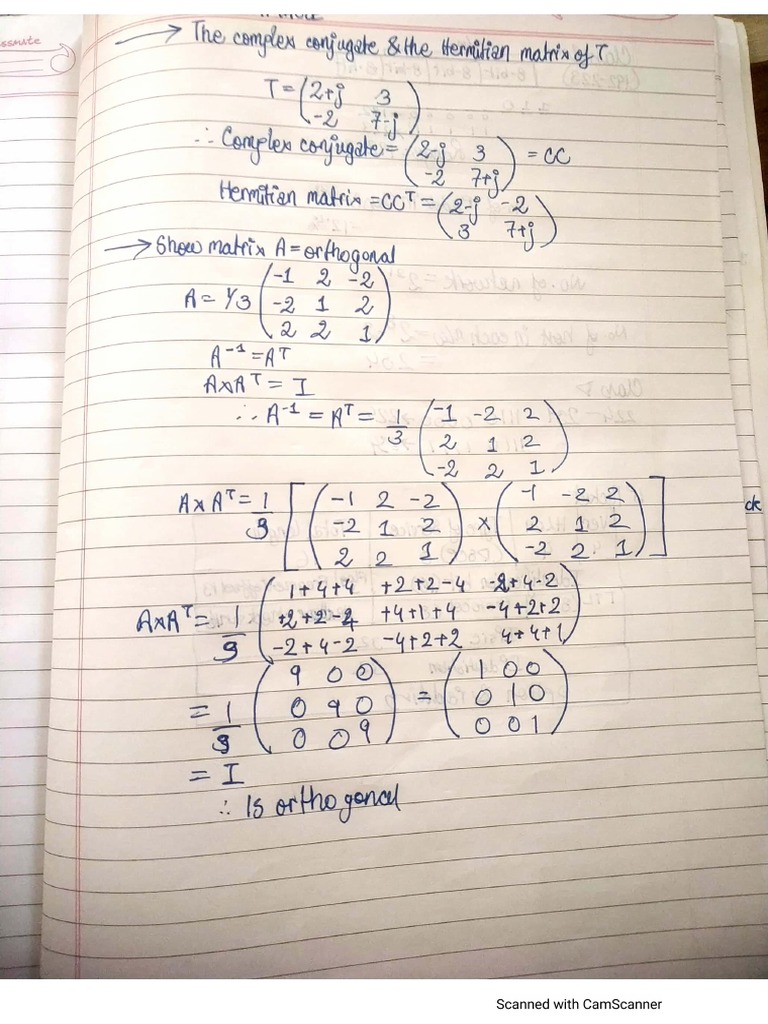 ssmate
→ The complex conjugate & the Hermitian matrix of T
T = (2+j 3
-2 7-j)
∴ Complex conjugate = (2-j 3
-2 7+j) = CC
Hermitian matrix = CCᵀ = (2-j -2
3 7+j)
→ Show matrix A = orthogonal
A = 1/3 (-1 2 -2
-2 1 2
2 2 1)
A⁻¹ = Aᵀ
A×Aᵀ = I
∴ A⁻¹ = Aᵀ = 1/3 (-1 -2 2
2 1 2
-2 2 1)
A×Aᵀ = 1/9 [(-1 2 -2
-2 1 2
2 2 1) × (-1 -2 2
2 1 2
-2 2 1)]
ck
A×Aᵀ = 1/9 (1+4+4 +2+2-4 -2+4-2
+2+2-4 +4+1+4 -4+2+2
-2+4-2 -4+2+2 4+4+1)
= 1/9 (9 0 0
0 9 0
0 0 9) = (1 0 0
0 1 0
0 0 1)
= I
∴ Is orthogonal
Scanned with CamScanner